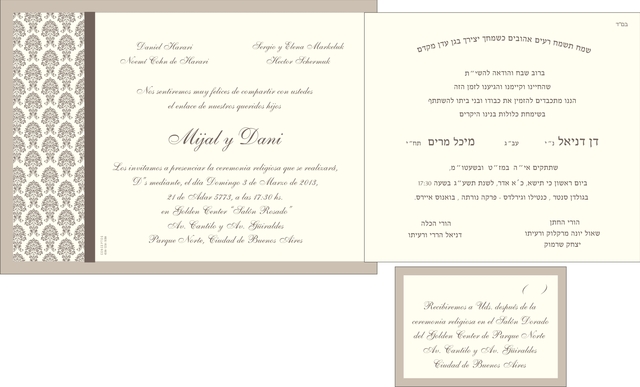 Daniel Harari
Noemí Cohn de Harari
Sergio y Elena Markuluk
Hector Schermuk
Nos sentiremos muy felices de compartir con ustedes
el enlace de nuestros queridos hijos
Mijal y Dani
Los invitamos a presenciar la ceremonia religiosa que se realizará,
D's mediante, el día Domingo 3 de Marzo de 2013,
21 de Adar 5773, a las 17:30 hs.
en Golden Center "Salón Rosado"
Av. Cantilo y Av. Güiraldes
Parque Norte, Ciudad de Buenos Aires
בס״ד
שמח תשמח רעים אהובים כשמחך יצירך בגן עדן מקדם
ברוב שבח והודאה להשי״ת
שהחיינו וקיימנו והגיענו לזמן הזה
הננו מתכבדים להזמין את כבודו ובני ביתו להשתתף
בשימחת כלולות בנינו היקרים
דן דניאל ני״ עב״ג מיכל מרים תחי״
שתתקיים אי״ה במז״ט ובשעטו״מ,
ביום ראשון כי תישא, כ״א אדר, לשנת תשע״ג בשעה 17:30
בגולדן סנטר , כנטילו וגילרדס - פרקה נורתה , בואנוס איירס.
הורי החתן
שאול יונה מרקלוק ורעיתו
יצחק שרמוק
הורי הכלה
דניאל הררי ורעיתו
( )
Recibiremos a Uds. después de la
ceremonia religiosa en el Salón Dorado
del Golden Center de Parque Norte
Av. Cantilo y Av. Güiraldes
Ciudad de Buenos Aires